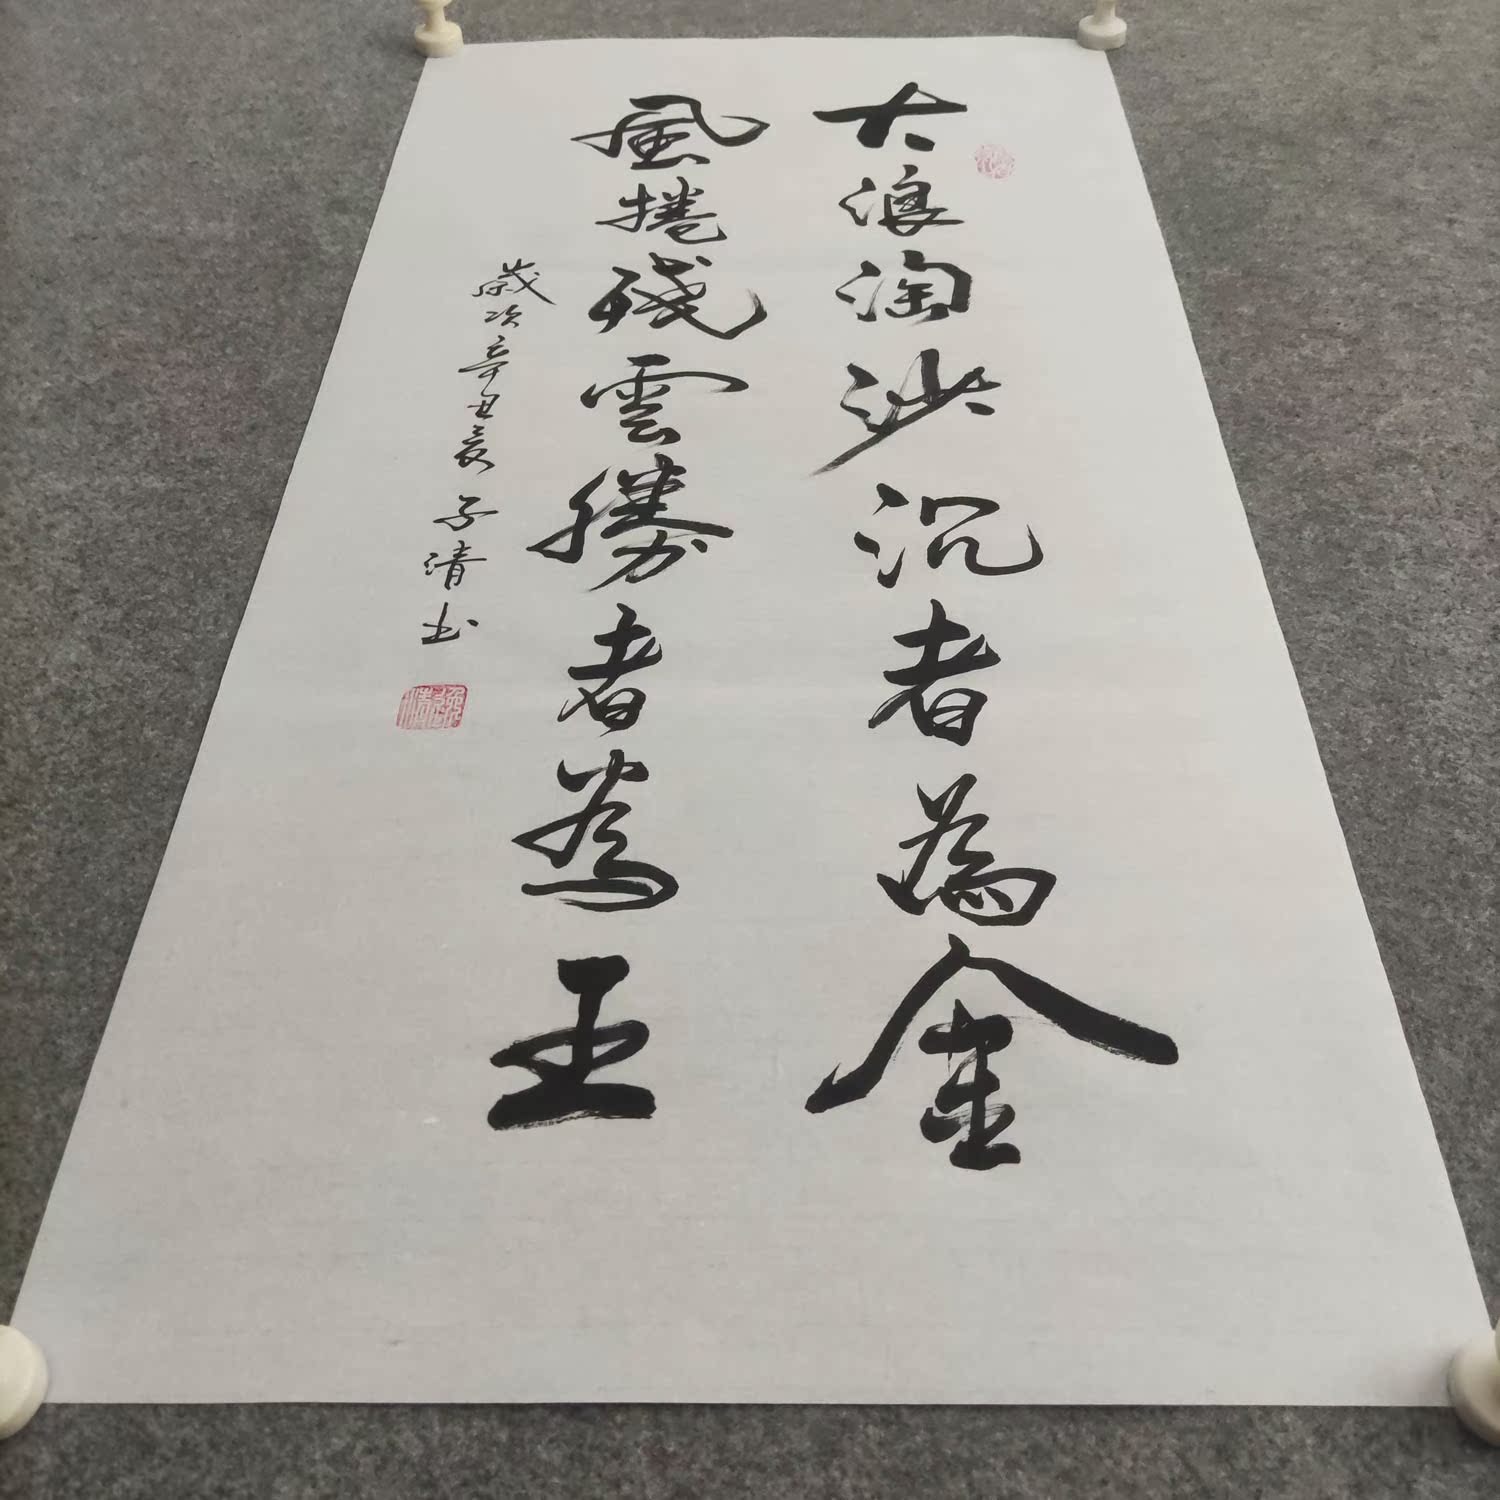 大浪淘沙沉者為金
風捲殘雲勝者為王
歲次辛丑夏子清书